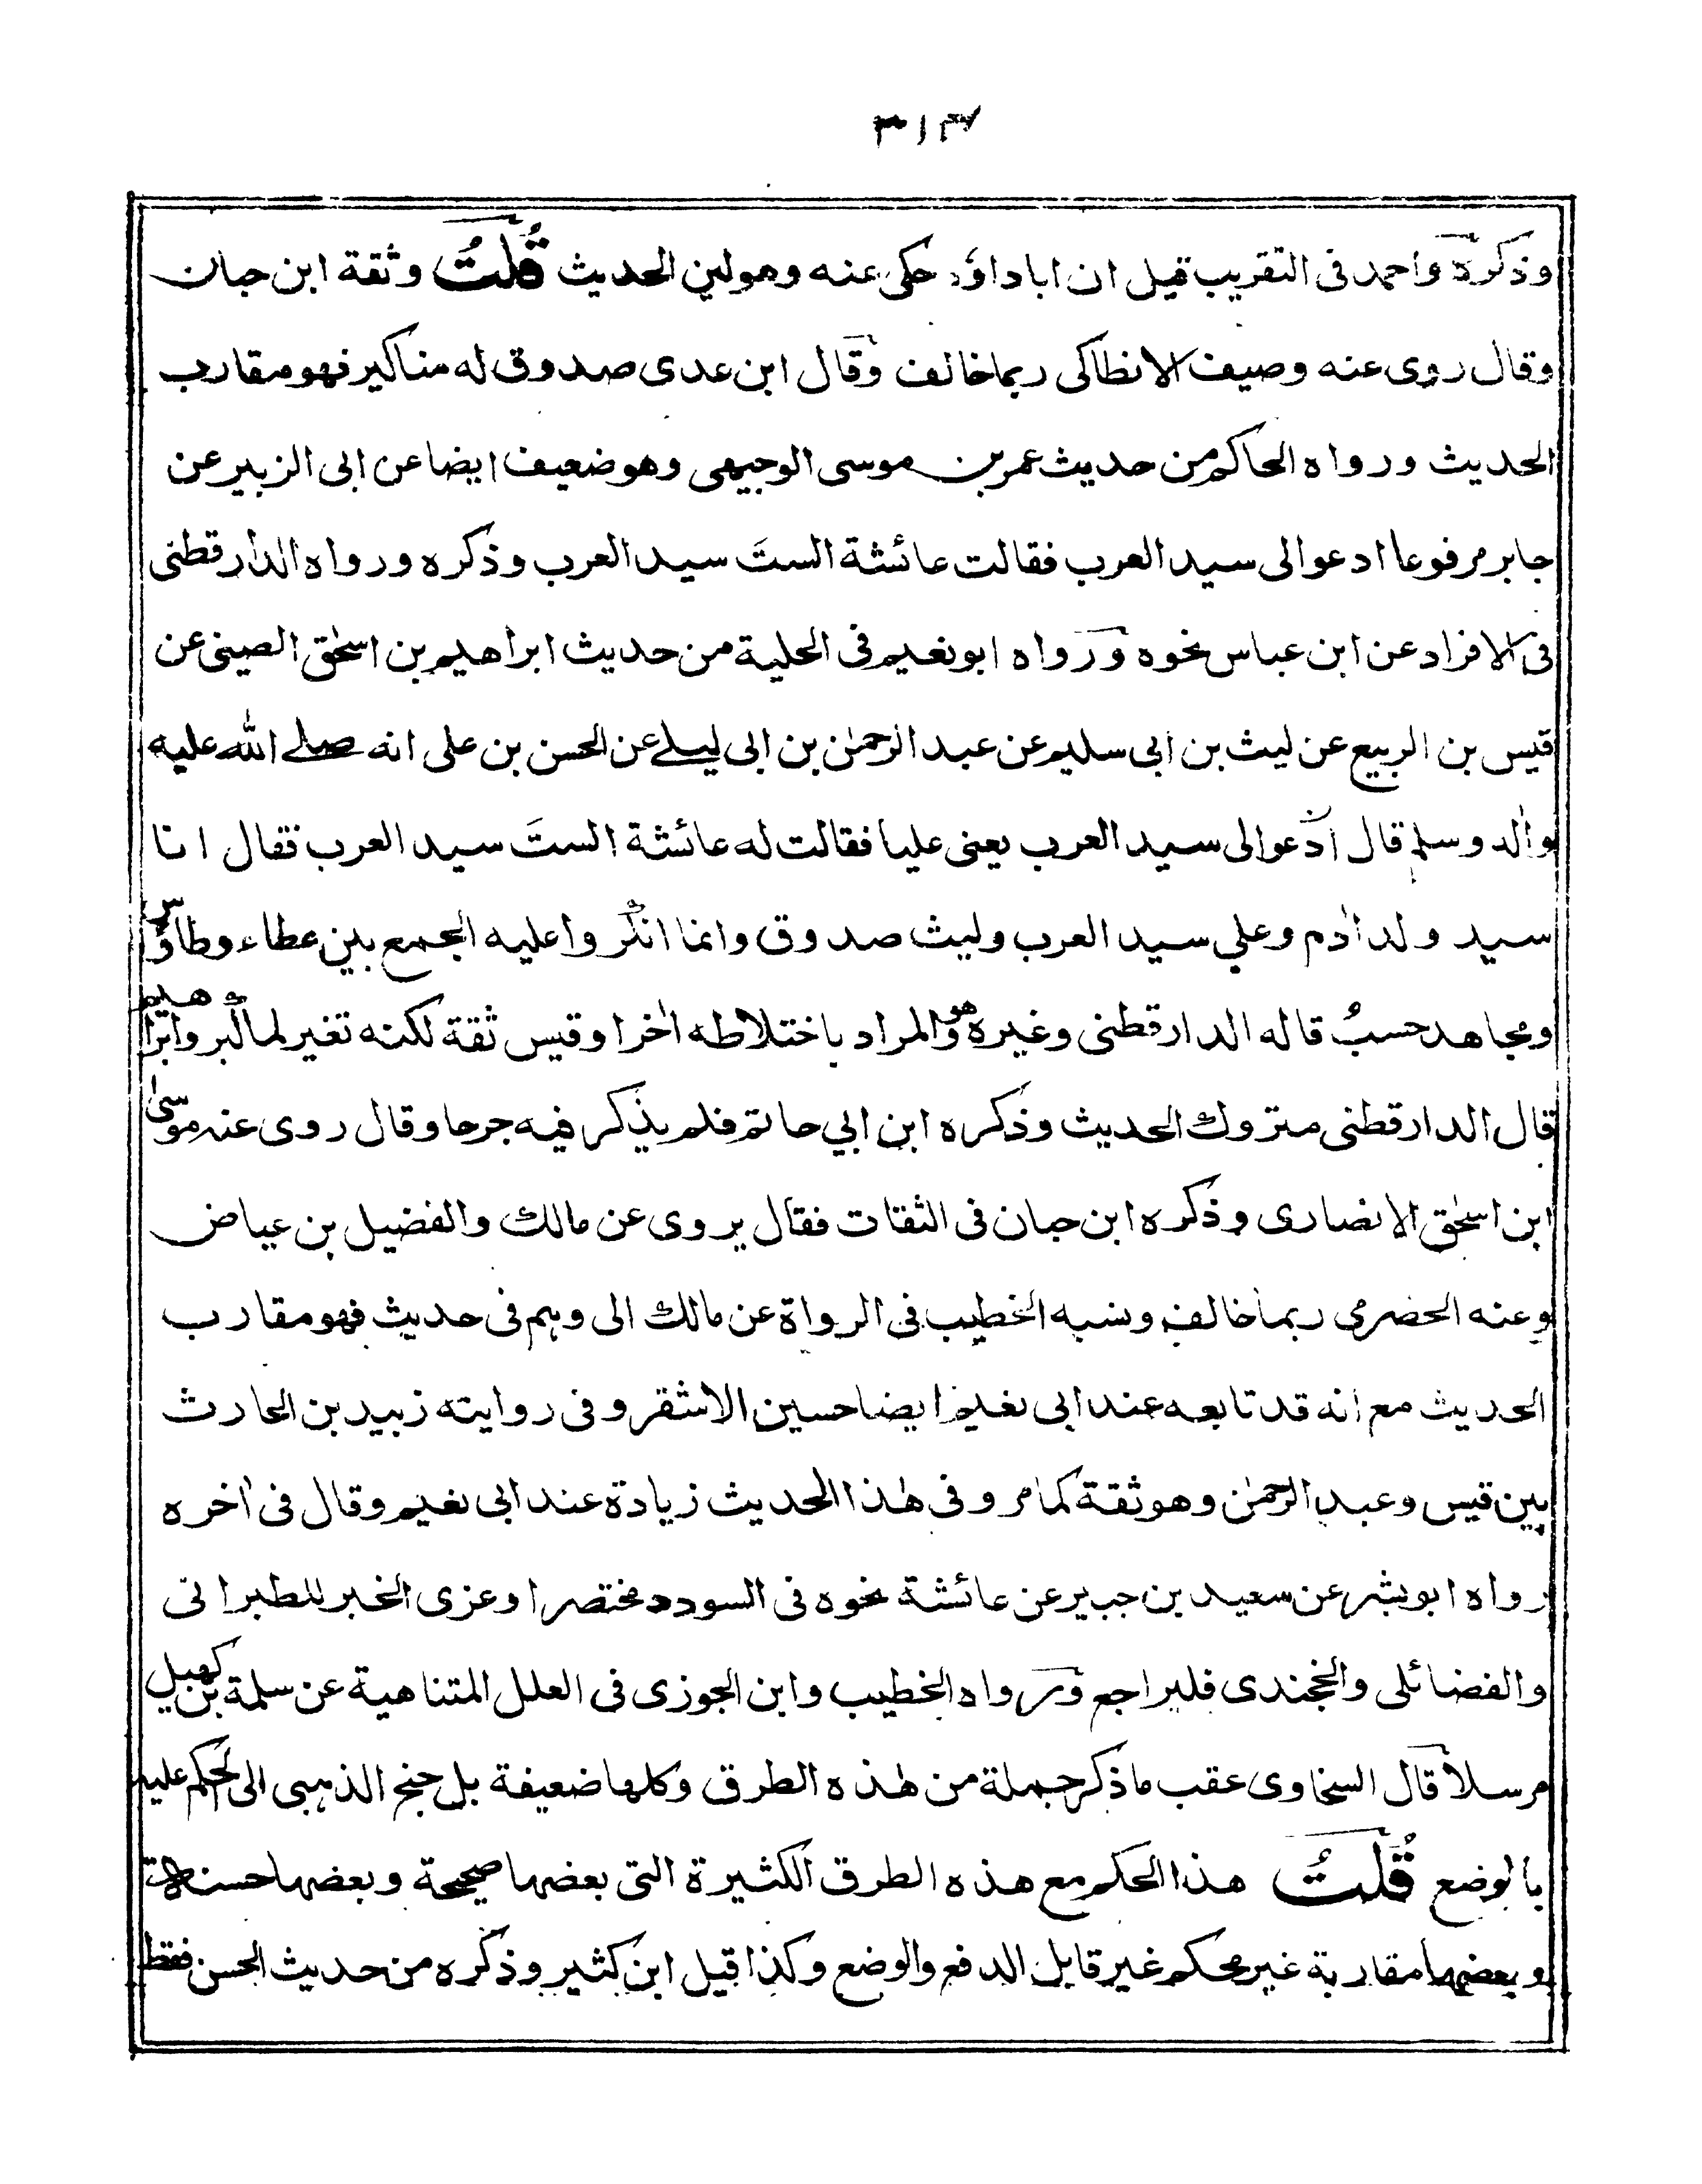 ۳۱۴
وذكره واحمد فى التقريب قيل ان ابا داؤد حكى عنه وهو لين الحديث قُلتُ وثقة ابن حبان
وقال روى عنه وصيف الانطاكى ربما خالف وقال ابن عدى صدوق له مناكير فهو مقارب
الحديث ورواه الحاكم من حديث عمر بن موسى الوجيهى وهو ضعيف ايضا عن ابى الزبير عن
جابر مرفوعا ادعوالى سيد العرب فقالت عائشة الستَ سيد العرب وذكره ورواه الدارقطنى
فى الافراد عن ابن عباس نحوه ورواه ابو نعيم فى الحلية من حديث ابراهيم بن اسحٰق الصينى عن
قيس بن الربيع عن ليث بن ابى سليم عن عبد الرحمٰن بن ابى ليلے عن الحسن بن على انه صلے الله عليه
واٰله وسلم قال ادعوالى سيد العرب يعنى عليا فقالت له عائشة الستَ سيد العرب فقال انا
سيد ولد اٰدم وعلي سيد العرب وليث صدوق وانما انكروا عليه الجمع بين عطاء وطاؤس
ومجاهد حسبُ قاله الدارقطنى وغيره وهو المراد باختلاطه اٰخرا وقيس ثقة لكنه تغير لما كبر وابراهيم
قال الدارقطنى متروك الحديث وذكره ابن ابي حاتم فلم يذكر فيه جرحا وقال روى عنه موسىٰ
ابن اسحٰق الانصارى وذكره ابن حبان فى الثقات فقال يروى عن مالك والفضيل بن عياض
وعنه الحضرمى ربما خالف ونسبه الخطيب فى الرواة عن مالك الى وهم فى حديث فهو مقارب
الحديث مع انه قد تابعه عند ابى نعيم ايضا حسين الاشقر وفى روايته زبيد بن الحارث
بين قيس وعبد الرحمٰن وهو ثقة كما مر وفى هٰذا الحديث زيادة عند ابى نعيم وقال فى اٰخره
رواه ابو بشر عن سعيد بن جبير عن عائشة نحوه فى السودد مختصرا وعزى الخبر للطبرانى
والفضائلى والخجندى فليراجع ورواه الخطيب وابن الجوزى فى العلل المتناهية عن سلمة بن كهيل
مرسلا قال السخاوى عقب ما ذكر جملة من هٰذه الطرق وكلها ضعيفة بل جنح الذهبى الى الحكم عليه
بالوضع قُلتُ هذا الحكم مع هذه الطرق الكثيرة التى بعضها صحيحة وبعضها حسنة
وبعضها مقاربة غير محكم غير قابل الدفع والوضع وكذا قيل ابن كثير وذكره من حديث الحسن فقط